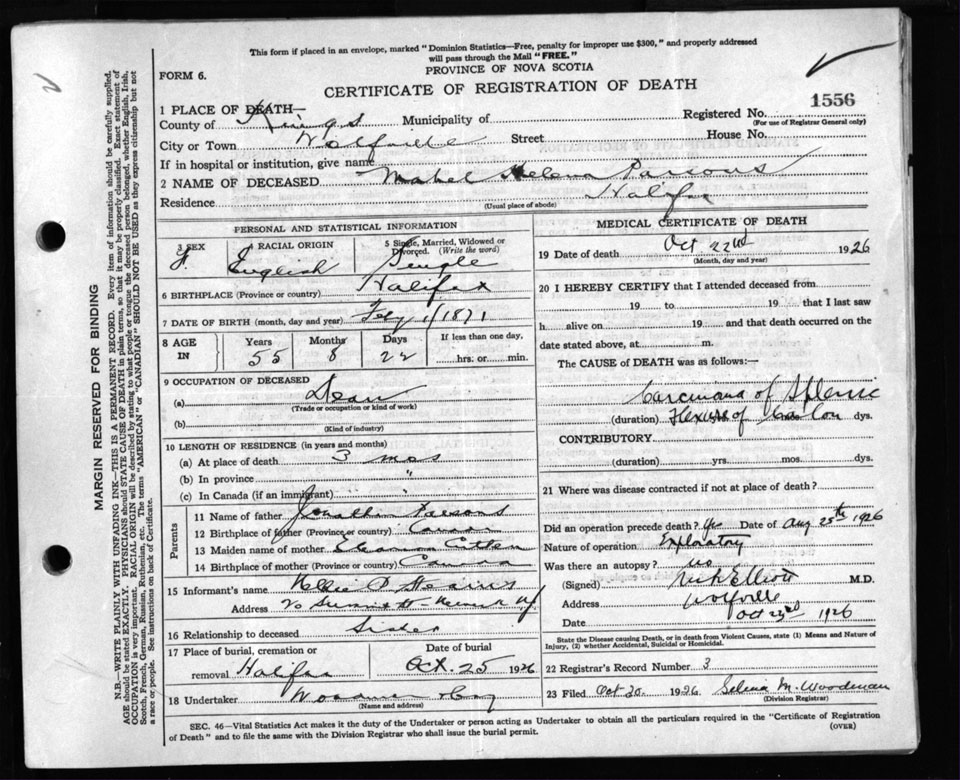 This form if placed in an envelope, marked "Dominion Statistics—Free, penalty for improper use $300," and properly addressed
will pass through the Mail "FREE."
PROVINCE OF NOVA SCOTIA
FORM 6.
CERTIFICATE OF REGISTRATION OF DEATH
1556
1 PLACE OF DEATH—
County of Kings Municipality of Registered No.
(For use of Registrar General only)
City or Town Wolfville Street House No.
If in hospital or institution, give name
2 NAME OF DECEASED Mabel Helena Parsons
Residence Halifax
(Usual place of abode)
PERSONAL AND STATISTICAL INFORMATION
3 SEX 4 RACIAL ORIGIN 5 Single, Married, Widowed or Divorced. (Write the word)
F. English Single
6 BIRTHPLACE (Province or country) Halifax
7 DATE OF BIRTH (month, day and year) Feby 1/1871
8 AGE IN Years Months Days If less than one day,
55 8 22 hrs. or min.
9 OCCUPATION OF DECEASED
(a) Dean
(Trade or occupation or kind of work)
(b)
(Kind of industry)
10 LENGTH OF RESIDENCE (in years and months)
(a) At place of death 3 mos
(b) In province "
(c) In Canada (if an immigrant)
Parents
11 Name of father Jonathan Parsons
12 Birthplace of father (Province or country)
13 Maiden name of mother Eleanor
14 Birthplace of mother (Province or country) Canada
15 Informant's name Nellie P.
Address
16 Relationship to deceased Sister
17 Place of burial, cremation or removal Halifax Date of burial Oct. 25 1926
18 Undertaker
(Name and address)
MEDICAL CERTIFICATE OF DEATH
19 Date of death Oct 22nd 1926
(Month, day and year)
20 I HEREBY CERTIFY that I attended deceased from
19 to 19 that I last saw
h alive on 19 and that death occurred on the
date stated above, at m.
The CAUSE of DEATH was as follows:—
Carcinoma of Splenic
(duration) Flexure of Colon dys.
CONTRIBUTORY
(duration) yrs. mos. dys.
21 Where was disease contracted if not at place of death?
Did an operation precede death? Yes Date of Aug 25th 1926
Nature of operation Exploratory
Was there an autopsy? no
(Signed) Elliott M.D.
Address Wolfville
Date Oct 23rd 1926
State the Disease causing Death, or in death from Violent Causes, state (1) Means and Nature of
Injury, (2) whether Accidental, Suicidal or Homicidal.
22 Registrar's Record Number 3
23 Filed Oct 30 1926 Selena M. Woodman
(Division Registrar)
SEC. 46—Vital Statistics Act makes it the duty of the Undertaker or person acting as Undertaker to obtain all the particulars required in the "Certificate of Registration
of Death" and to file the same with the Division Registrar who shall issue the burial permit. (OVER)
MARGIN RESERVED FOR BINDING
N.B.—WRITE PLAINLY WITH UNFADING INK—THIS IS A PERMANENT RECORD. Every item of information should be carefully supplied.
AGE should be stated EXACTLY. PHYSICIANS should STATE CAUSE OF DEATH in plain terms, so that it may be properly classified. Exact statement of
OCCUPATION is very important. RACIAL ORIGIN will be described by stating to what people or tongue the deceased person belonged, whether English, Irish,
Scotch, French, German, Russian, Ruthenian, etc. The terms "AMERICAN" or "CANADIAN" SHOULD NOT BE USED as they express citizenship but not
a race or people. See instructions on back of Certificate.